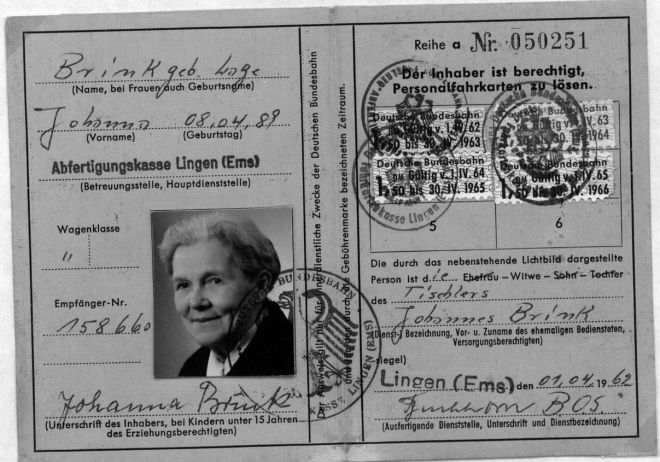 Brink geb. Lage
(Name, bei Frauen auch Geburtsname)
Johanna 08.04.89
(Vorname) (Geburtstag)
Abfertigungskasse Lingen (Ems)
(Betreuungsstelle, Hauptdienststelle)
Wagenklasse
"
Empfänger-Nr.
158660
Johanna Brink
(Unterschrift des Inhabers, bei Kindern unter 15 Jahren
des Erziehungsberechtigten)
DEUTSCHE BUNDESBAHN
LINGEN (EMS)
Zwecke der Deutschen Bundesbahn
Gebührenmarke bezeichneten Zeitraum.
Reihe a Nr. 050251
Der Inhaber ist berechtigt,
Personalfahrkarten zu lösen.
Deutsche Bundesbahn
Gültig v. 1. IV. 62
bis 30. IV. 1963
Bundesbahn
v. 1. IV. 63
IV. 1964
Deutsche Bundesbahn
Gültig v. 1. IV. 64
1,50 bis 30. IV. 1965
Bundesbahn
Gültig v. 1. IV. 65
1,50 bis 30. IV. 1966
5 6
Die durch das nebenstehende Lichtbild dargestellte
Person ist die Ehefrau – Witwe – Sohn – Tochter
des Tischlers
Johannes Brink
(Dienst-) Bezeichnung, Vor- u. Zuname des ehemaligen Bediensteten,
Versorgungsberechtigten)
(Siegel)
Lingen (Ems) den 01.04.1962
B.O.S.
(Ausfertigende Dienststelle, Unterschrift und Dienstbezeichnung)